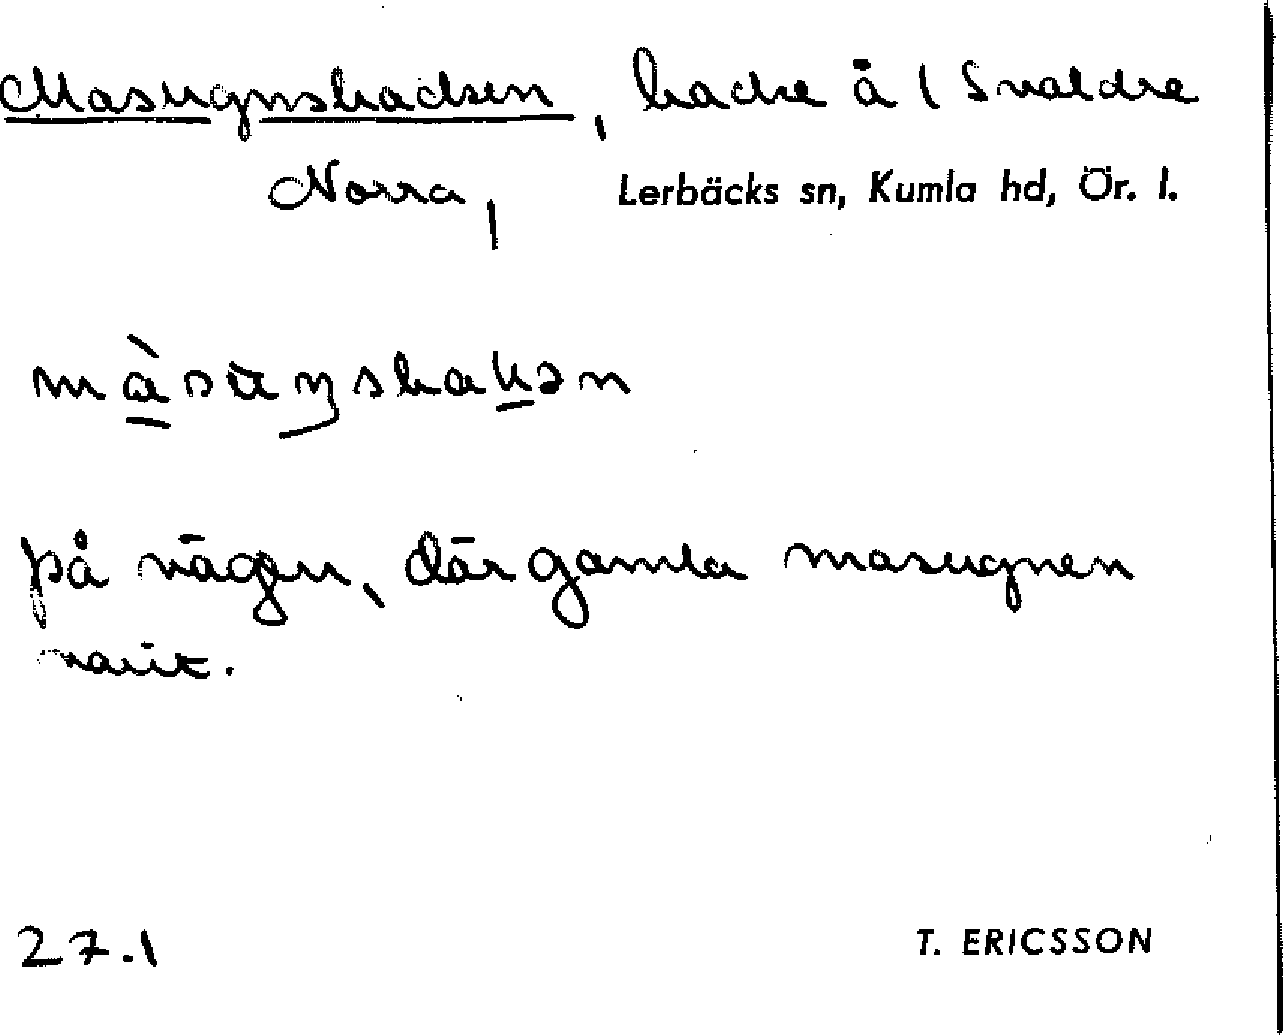 Masugnsbacken, backe å 1 Svaldre
Norra, Lerbäcks sn, Kumla hd, Ör. l.
på vägen, där gamla masugnen
varit.
27.1 T. ERICSSON